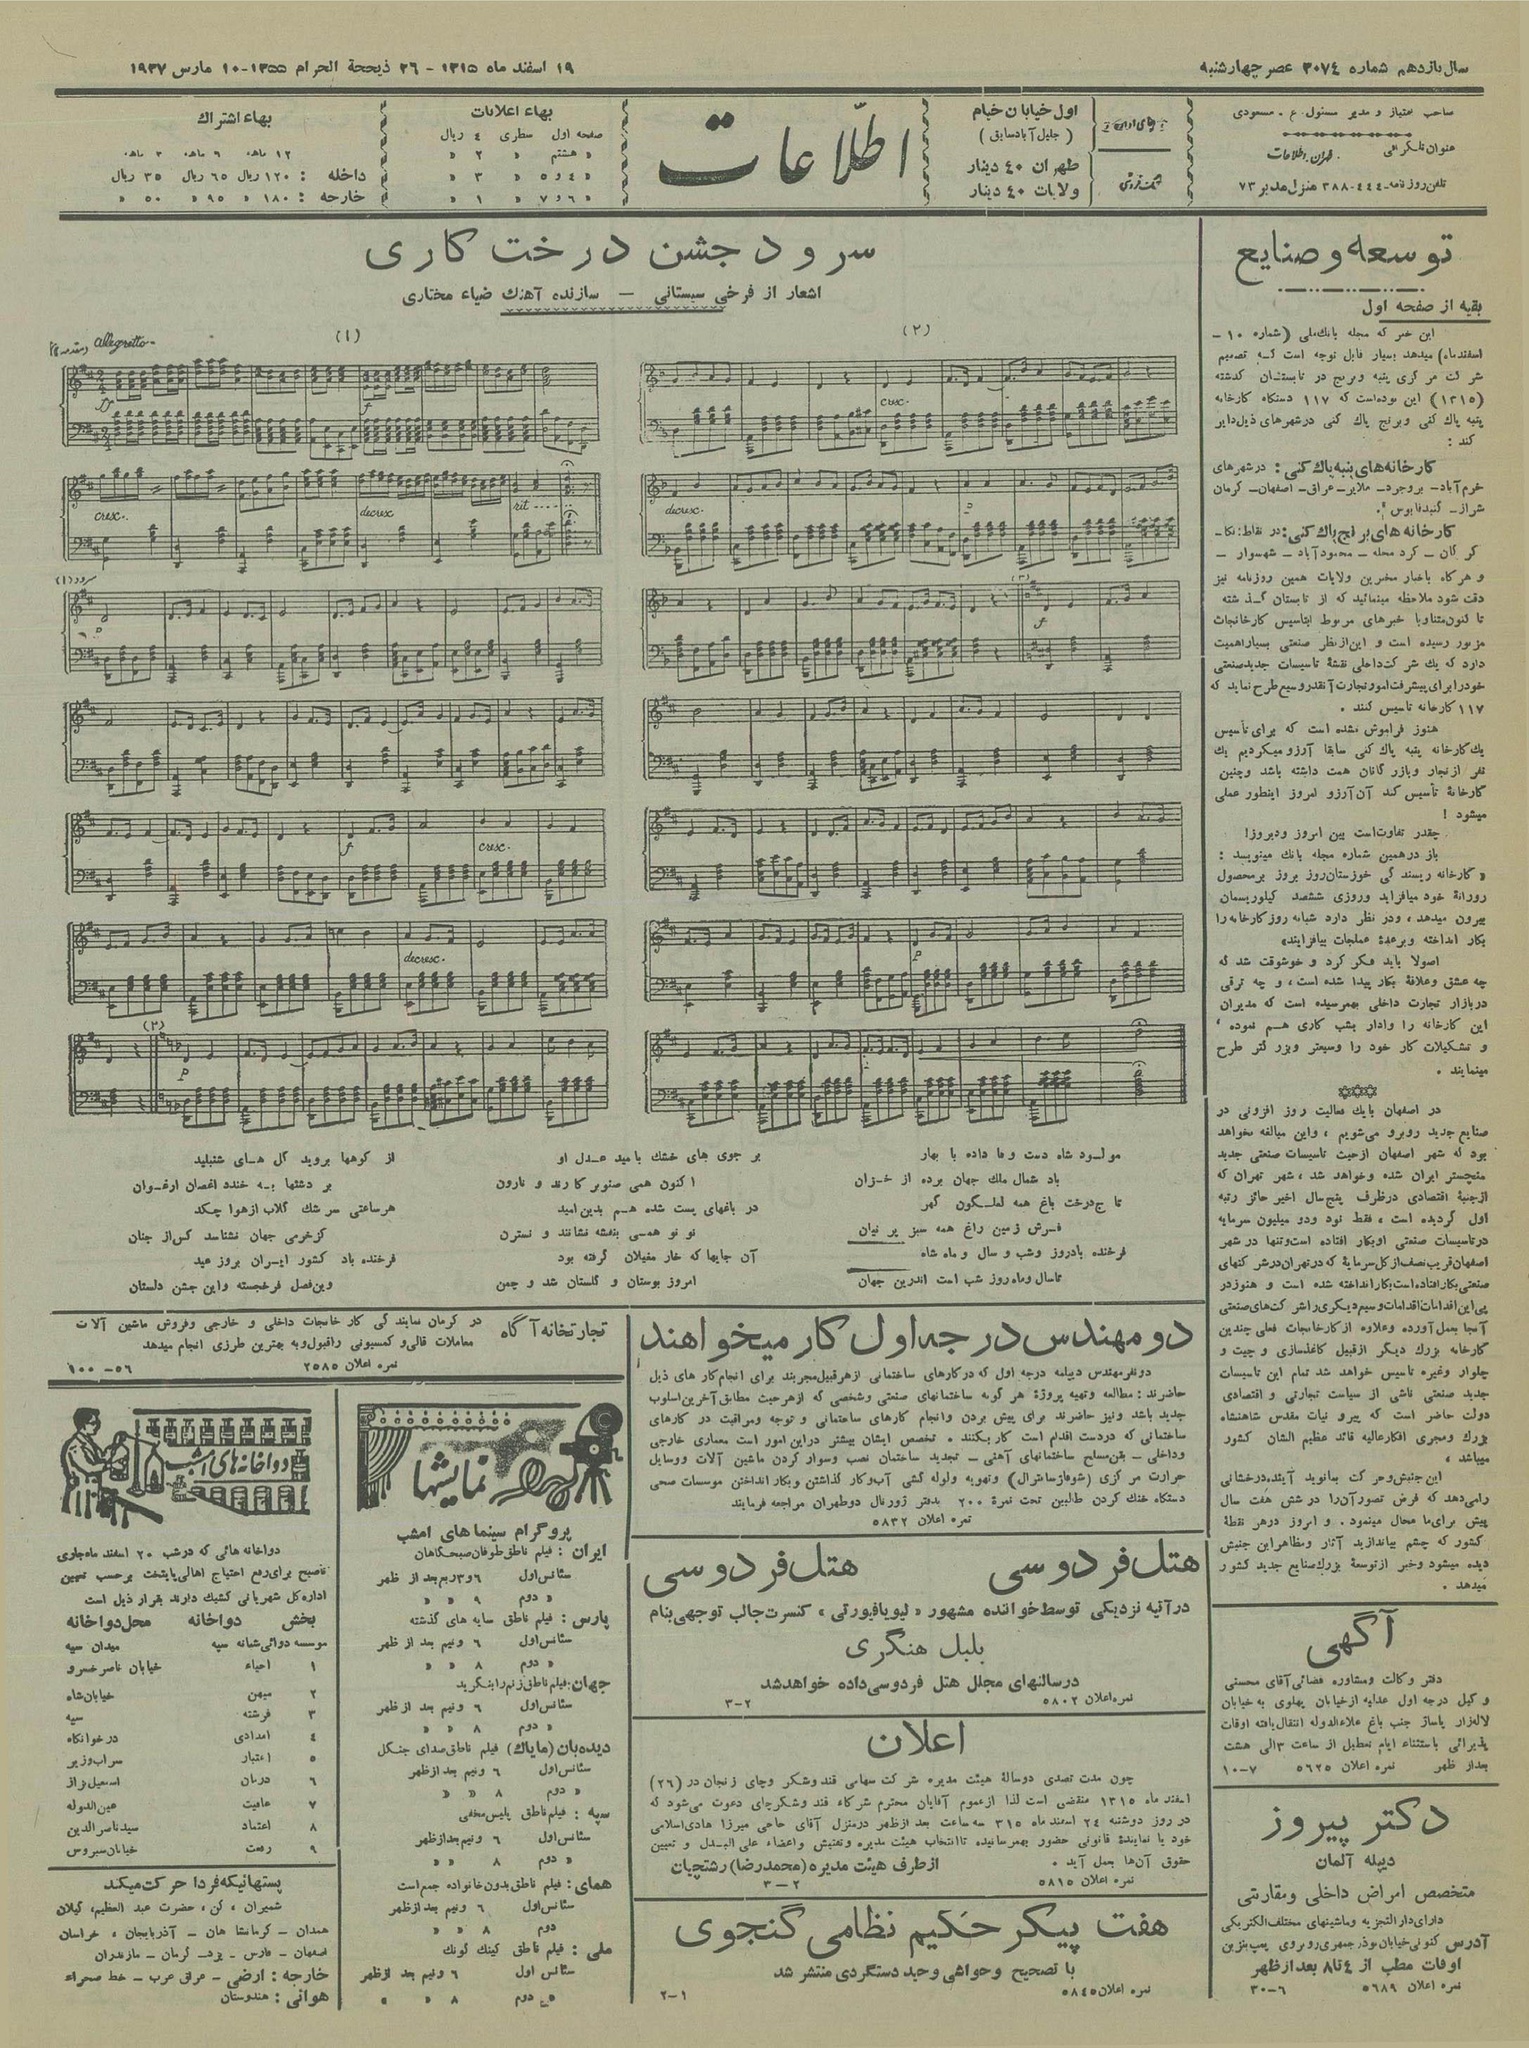 سال یازدهم شماره ۳۰۷۴ عصر چهارشنبه
۱۹ اسفند ماه ۱۳۱۵ - ۲۶ ذیحجة الحرام ۱۳۵۵ - ۱۰ مارس ۱۹۳۷
صاحب امتیاز و مدیر مسئول ع . مسعودی
عنوان تلگرافی طهران اطلاعات
تلفن روزنامه - ۴۴۴-۳۸۸ منزل مدیر ۷۳
اول خیابان خیام
( جلیل آباد سابق )
تکفروشی
طهران ۴۰ دینار
ولایات ۴۰ دینار
اطلاعات
بهاء اعلانات
صفحه اول سطری ۴ ریال
« هشتم « ۲ «
« ۴ و ۵ « ۳ «
« ۶ و ۷ « ۱ «
بهاء اشتراک
۱۲ ماهه ۶ ماهه ۳ ماهه
داخله : ۱۲۰ ریال ۶۵ ریال ۳۵ ریال
خارجه : ۱۸۰ « ۹۵ « ۵۰ «
توسعه و صنایع
بقیه از صفحه اول
این خبر که مجله بانک ملی (شماره ۱۰ -
اسفند ماه) میدهد بسیار قابل توجه است که تصمیم
شرکت مرکزی پنبه و برنج در تابستان گذشته
(۱۳۱۵) این بوده است که ۱۱۷ دستگاه کارخانه
پنبه پاک کنی و برنج پاک کنی در شهرهای ذیل دایر
کند :
کارخانه های پنبه پاک کنی : در شهرهای
خرم آباد - بروجرد - ملایر - عراق - اصفهان - کرمان
شراز - گنبدقابوس .
کارخانه های برنج پاک کنی : در نقاط : نکا -
گرگان - کرد محله - محمودآباد - شهسوار -
و هرگاه باخبار مخبرین ولایات همین روزنامه نیز
دقت شود ملاحظه مینمائید که از تابستان گذشته
تا کنون متناوبا خبرهای مربوط بتاسیس کارخانجات
مزبور رسیده است و این از نظر صنعتی بسیار اهمیت
دارد که یک شرکت داخلی نقشهٔ تاسیسات جدید صنعتی
خود را برای پیشرفت امور تجارت آنقدر وسیع طرح نماید که
۱۱۷ کارخانه تاسیس کنند .
هنوز فراموش نشده است که برای تأسیس
یک کارخانه پنبه پاک کنی سابقا آرزو میکردیم یک
نفر از تجار و بازرگانان همت داشته باشد و چنین
کارخانهٔ تأسیس کند آن آرزو امروز اینطور عملی
میشود !
چقدر تفاوت است بین امروز و دیروز !
باز در همین شماره مجله بانک مینویسد :
« کارخانه ریسندگی خوزستان روز بروز بر محصول
روزانهٔ خود میافزاید و روزی ششصد کیلو ریسمان
بیرون میدهد ، و در نظر دارد شبانه روز کارخانه را
بکار انداخته و برعدهٔ عملجات بیافزایند»
اصولا باید فکر کرد و خوشوقت شد که
چه عشق و علاقهٔ بکار پیدا شده است ، و چه ترقی
در بازار تجارت داخلی بهمرسیده است که مدیران
این کارخانه را وادار بشب کاری هم نموده ،
و تشکیلات کار خود را وسیعتر و بزرگتر طرح
مینمایند .
در اصفهان با یک فعالیت روز افزونی در
صنایع جدید روبرو می‌شویم ، و این مبالغه نخواهد
بود که شهر اصفهان از حیث تاسیسات صنعتی جدید
منچستر ایران شده و خواهد شد ، شهر تهران که
از جنبهٔ اقتصادی در ظرف پنج سال اخیر حائز رتبه
اول گردیده است ، فقط نود و دو میلیون سرمایه
در تاسیسات صنعتی او بکار افتاده است و تنها در شهر
اصفهان قریب نصف از کل سرمایهٔ که در تهران در شرکتهای
صنعتی بکار افتاده است بکار انداخته شده است و هنوز در
پی این اقدامات اقدامات وسیم دیگری را شرکت های صنعتی
آنجا بعمل آورده و علاوه از کارخانجات فعلی چندین
کارخانه بزرگ دیگر از قبیل کاغذسازی و چیت و
چلوار وغیره تاسیس خواهد شد تمام این تاسیسات
جدید صنعتی ناشی از سیاست تجارتی و اقتصادی
دولت حاضر است که پیرو نیات مقدس شاهنشاه
بزرگ ومجری افکار عالیه قائد عظیم الشان کشور
میباشد .
این جنبش و حرکت بما نوید آینده درخشانی
را می‌دهد که فرض تصور آن را در شش هفت سال
پیش برای ما محال مینمود . و امروز در هر نقطهٔ
کشور که چشم بیاندازید آثار و مظاهر این جنبش
دیده میشود و خبر از توسعهٔ بزرگ صنایع جدید کشور
میدهد .
آگهی
دفتر وکالت و مشاوره قضائی آقای محسنی
وکیل درجه اول عدلیه از خیابان پهلوی به خیابان
لاله‌زار پاساژ جنب باغ علاءالدوله انتقال یافته اوقات
پذیرائی باستثناء ایام تعطیل از ساعت ۳ الی هشت
بعد از ظهر نمره اعلان ۵۶۲۵ ۷-۱۰
دکتر پیروز
دیپلمه آلمان
متخصص امراض داخلی و مقاربتی
دارای دارالتجزیه و ماشینهای مختلف الکتریکی
آدرس کنونی خیابان بوذرجمهری روبروی پمپ بنزین
اوقات مطب از ۴ تا ۸ بعد از ظهر
نمره اعلان ۵۶۸۹ ۶-۳۰
سرود جشن درخت کاری
اشعار از فرخی سیستانی — سازنده آهنگ ضیاء مختاری
(۱)
Allegretto
cresc.
decresc
rit
سرود (۱)
cresc.
decresc.
(۲)
(۲)
cresc.
decresc.
(۳)
مولود شاه دست وفا داده با بهار
باد شمال ملک جهان برده از خزان
تاج درخت باغ همه لعلگون گهر
فرش زمین راغ همه سبز پرنیان
فرخنده باد روز و شب و سال و ماه شاه
تا سال و ماه روز شب است اندرین جهان
بر جوی های خشک بامید عدل او
اکنون همی صنوبر کارند و نارون
در باغهای پست شده هم بدین امید
نو نو همی بنفشه نشانند و نسترن
آن جایها که خار مغیلان گرفته بود
امروز بوستان و گلستان شد و چمن
از کوهها بروید گل های شنبلید
بر دشتها به خندد اغصان ارغوان
هر ساعتی سرشک گلاب از هوا چکد
کز خرمی جهان نشناسد کس از جنان
فرخنده باد کشور ایران بروز عید
وین فصل فرخجسته و این جشن دلستان
دو مهندس درجه اول کار میخواهند
دو نفر مهندس دیپلمه درجه اول که در کارهای ساختمانی از هر قبیل مجربند برای انجام کار های ذیل
حاضرند : مطالعه وتهیه پروژهٔ هر گونه ساختمانهای صنعتی و شخصی که از هر حیث مطابق آخرین اسلوب
جدید باشد ونیز حاضرند برای پیش بردن و انجام کارهای ساختمانی و توجه ومراقبت در کارهای
ساختمانی که در دست اقدام است کار بکنند . تخصص ایشان بیشتر در این امور است معماری خارجی
وداخلی - بتن مسلح ساختمانهای آهنی - تجدید ساختمان نصب وسوار کردن ماشین آلات و وسایل
حرارت مرکزی (شوفاژ سانترال) وتهویه ولوله کشی آب و کار گذاشتن وبکار انداختن موسسات صحی
دستگاه خنک کردن طالبین تحت نمره ۲۰۰ بدفتر ژورنال دو طهران مراجعه فرمایند
نمره اعلان ۵۸۳۲
هتل فردوسی هتل فردوسی
در آتیه نزدیکی توسط خواننده مشهور « لیویافیورتی » کنسرت جالب توجهی بنام
بلبل هنگری
در سالنهای مجلل هتل فردوسی داده خواهد شد
نمره اعلان ۵۸۰۲ ۲-۳
اعلان
چون مدت تصدی دوسالهٔ هیئت مدیره شرکت سهامی قند و شکر و چای زنجان در (۲۶)
اسفند ماه ۱۳۱۵ منقضی است لذا از عموم آقایان محترم شرکاء قند و شکر چای دعوت می‌شود که
در روز دوشنبه ۲۴ اسفند ماه ۳۱۵ سه ساعت بعد از ظهر در منزل آقای حاجی میرزا هادی اسلامی
خود یا نمایندهٔ قانونی حضور بهمرسانیده تا انتخاب هیئت مدیره و تفتیش و اعضاء علی البدل و تعیین
حقوق آن‌ها بعمل آید . از طرف هیئت مدیره (محمدرضا) رشتچیان
نمره اعلان ۵۸۱۵ ۲-۳
هفت پیکر حکیم نظامی گنجوی
با تصحیح و حواشی وحید دستگردی منتشر شد
نمره اعلان ۵۸۴۵ ۱-۲
تجارتخانه آگاه
در کرمان نمایندگی کارخانجات داخلی و خارجی و فروش ماشین آلات
معاملات قالی و کمسیونی را قبول و به بهترین طرزی انجام میدهد
نمره اعلان ۲۵۸۵ ۵۶-۱۰۰
نمایشها
پروگرام سینماهای امشب
ایران : فیلم ناطق طوفان صبحگاهان
سئانس اول ۶ و ۳ ربع بعد از ظهر
« دوم ۹ « «
پارس : فیلم ناطق سایه های گذشته
سئانس اول ۶ ونیم بعد از ظهر
« دوم ۸ « «
جهان : فیلم ناطق زنم را بنگرید
سئانس اول ۶ ونیم بعد از ظهر
« دوم ۸ « «
دیده‌بان (مایاک) فیلم ناطق صدای جنگل
سئانس اول ۶ ونیم بعد از ظهر
« دوم ۸ « «
سپه : فیلم ناطق پلیس مخفی
سئانس اول ۶ ونیم بعد از ظهر
« دوم ۸ « «
همای : فیلم ناطق بدون خانواده جمع است
سئانس اول ۶ ونیم بعد از ظهر
دوم ۸ « «
ملی : فیلم ناطق کینک کونک
سئانس اول ۶ ونیم بعد از ظهر
« دوم ۸ « «
دواخانه های امشب
دواخانه هائی که در شب ۲۰ اسفند ماه جاری
تا صبح برای رفع احتیاج اهالی پایتخت برحسب تعیین
اداره کل شهربانی کشیک دارند بقرار ذیل است
بخش دواخانه محل دواخانه
موسسه دوائی شبانه سپه میدان سپه
۱ احیاء خیابان ناصرخسرو
۲ میهن خیابان شاه
۳ فرشته سپه
۴ امدادی درخوانگاه
۵ اعتبار سراب وزیر
۶ درمان اسمعیل بزاز
۷ عافیت عین الدوله
۸ اعتماد سید ناصرالدین
۹ رفعت خیابان سیروس
پستهائیکه فردا حرکت میکند
شمیران ، کن ، حضرت عبد العظیم، گیلان
همدان - کرمانشاهان - آذربایجان ، خراسان
اصفهان - فارس - یزد - کرمان - مازندران
خارجه : ارضی - عراق عرب - خط صحراء
هوائی : هندوستان